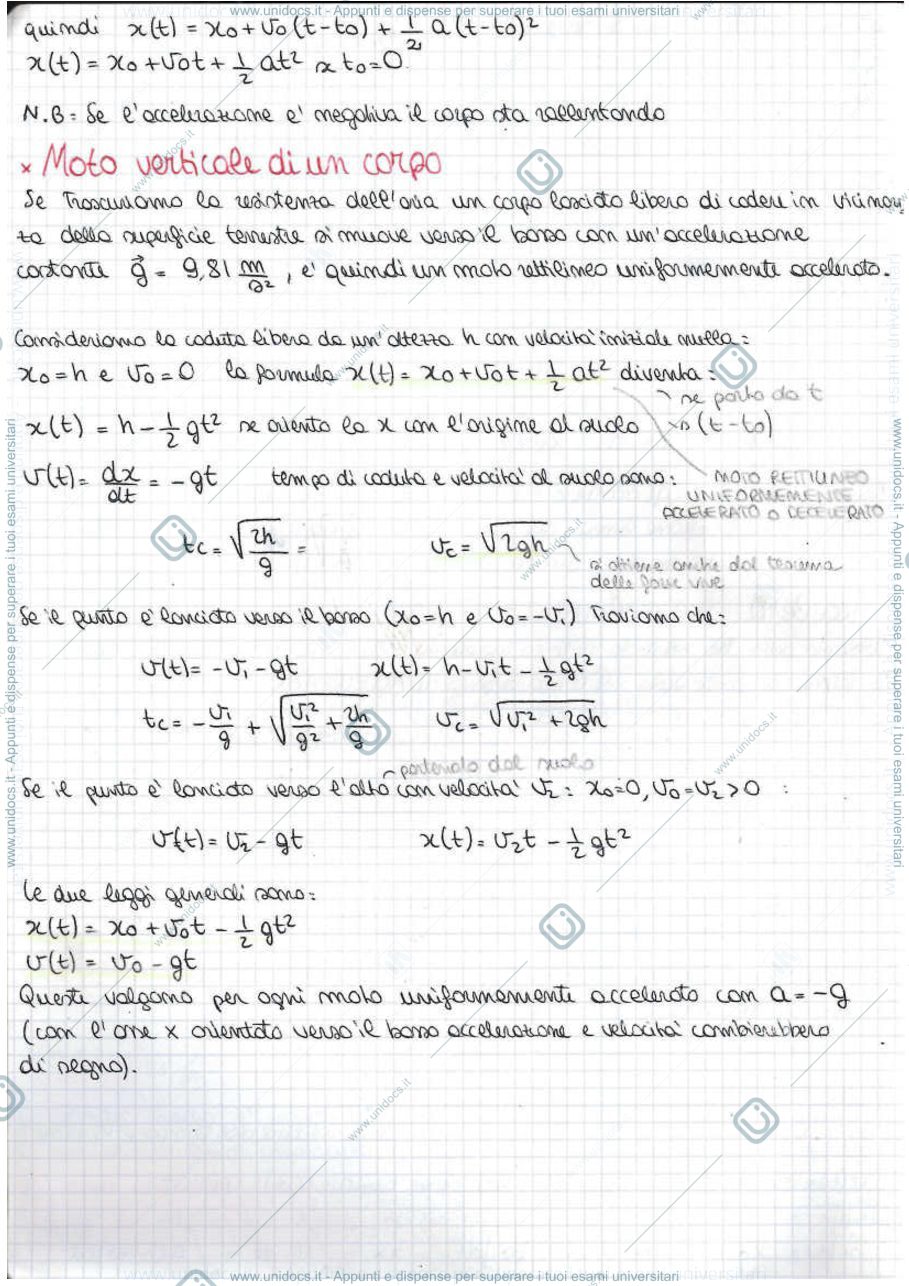 www.unidocs.it - Appunti e dispense per superare i tuoi esami universitari
quindi x(t) = x0 + v0 (t-t0) + 1/2 a (t-t0)²
x(t) = x0 + v0t + 1/2 at² se t0=0
N.B: Se l'accelerazione e' negativa il corpo sta rallentando
× Moto verticale di un corpo
Se Trascuriamo la resistenza dell'aria un corpo lasciato libero di cadere in vicinan
za della superficie terrestre si muove verso il basso con un'accelerazione
costante g⃗ = 9,81 m/s², e' quindi un moto rettilineo uniformemente accelerato.
Consideriamo la caduta libera da un'altezza h con velocita' iniziale nulla:
x0 = h e v0 = 0 la formula x(t) = x0 + v0t + 1/2 at² diventa:
se parto da t
x(t) = h - 1/2 gt² se oriento la x con l'origine al suolo (t-t0)
v(t) = dx/dt = -gt tempo di caduta e velocita' al suolo sono:
MOTO RETTILINEO
UNIFORMEMENTE
ACCELERATO o DECELERATO
tc = √(2h/g) = vc = √(2gh)
si ottiene anche dal teorema
delle forze vive
Se il punto e' lanciato verso il basso (x0=h e v0=-v1) Troviamo che:
v(t) = -v1 - gt x(t) = h - v1t - 1/2 gt²
tc = - v1/g + √(v1²/g² + 2h/g) vc = √(v1² + 2gh)
partendo dal suolo
Se il punto e' lanciato verso l'alto con velocita' v2: x0=0, v0=v2>0 :
v(t) = v2 - gt x(t) = v2t - 1/2 gt²
Le due leggi generali sono:
x(t) = x0 + v0t - 1/2 gt²
v(t) = v0 - gt
Queste valgono per ogni moto uniformemente accelerato con a = -g
(con l'asse x orientato verso il basso accelerazione e velocita' cambierebbero
di segno).
www.unidocs.it - Appunti e dispense per superare i tuoi esami universitari
www.unidocs.it - Appunti e dispense per superare i tuoi esami universitari
www.unidocs.it - Appunti e dispense per superare i tuoi esami universitari
www.unidocs.it
www.unidocs.it
www.unidocs.it
www.unidocs.it
www.unidocs.it
www.unidocs.it